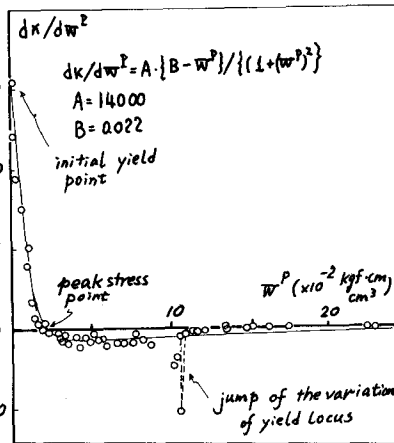 dκ/dw^p
dκ/dw^p = A·{B-w^p}/{(1+(w^p)^2}
A=14000
B=0.022
initial yield
point
peak stress
point
w^p (×10^-2 kgf·cm/cm^3)
0
10
20
0
jump of the variation
of yield locus